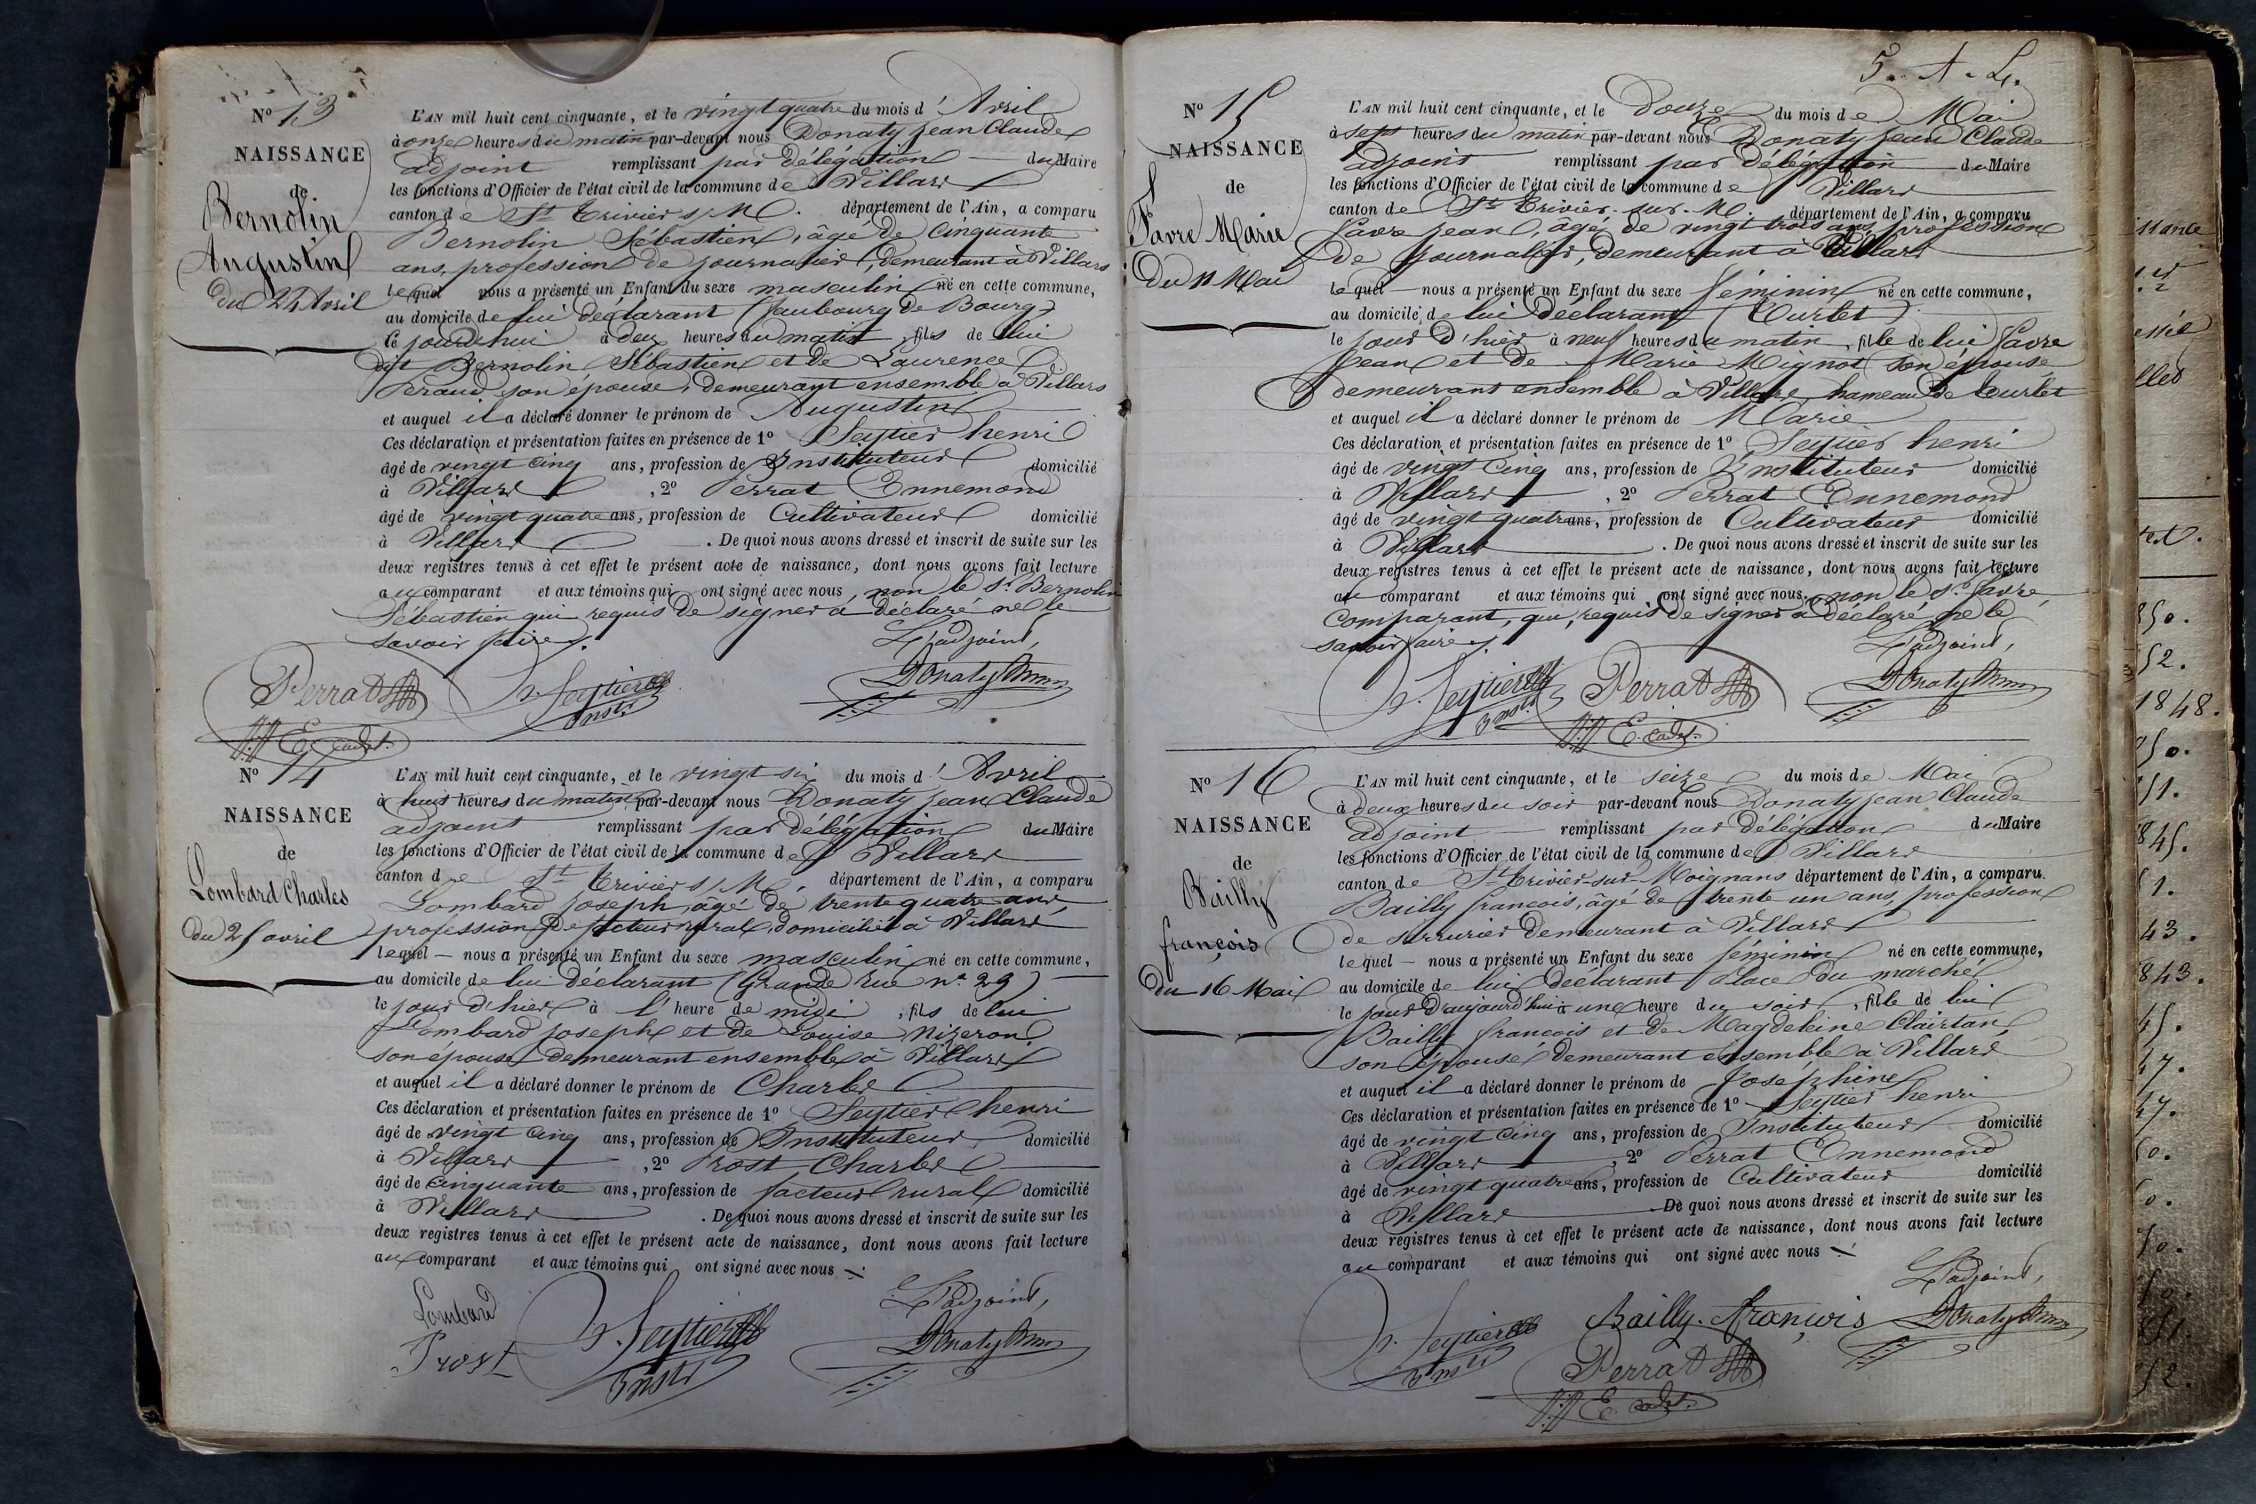 N° 13
NAISSANCE
de
Bernolin
Augustin
du 24 Avril
L'AN mil huit cent cinquante, et le vingt quatre du mois d'Avril
à onze heures du matin par-devant nous Donaty Jean Claude
adjoint remplissant par délégation du Maire
les fonctions d'Officier de l'état civil de la commune de Villars
canton de St Trivier s/M. département de l'Ain, a comparu
Bernolin Sébastien, âgé de cinquante
ans, profession de journalier, demeurant à Villars
lequel nous a présenté un Enfant du sexe masculin né en cette commune,
au domicile de lui déclarant (faubourg de Bourg)
ce jourd'hui à deux heures du matin, fils de lui
dit Bernolin Sébastien et de Laurence
Peraud son épouse, demeurant ensemble à Villars
et auquel il a déclaré donner le prénom de Augustin
Ces déclaration et présentation faites en présence de 1° Seytier henri
âgé de vingt cinq ans, profession de Instituteur domicilié
à Villars, 2° Perrat Ennemond
âgé de vingt quatre ans, profession de Cultivateur domicilié
à Villars. De quoi nous avons dressé et inscrit de suite sur les
deux registres tenus à cet effet le présent acte de naissance, dont nous avons fait lecture
au comparant et aux témoins qui ont signé avec nous, non le sr Bernolin
Sébastien qui requis de signer a déclaré ne le
savoir faire.
L'adjoint,
Perrat Seytier Donaty
E. cadet. Instr
N° 14
NAISSANCE
de
Lombard Charles
du 25 avril
L'AN mil huit cent cinquante, et le vingt six du mois d'Avril
à huit heures du matin par-devant nous Donaty Jean Claude
adjoint remplissant par délégation du Maire
les fonctions d'Officier de l'état civil de la commune de Villars
canton de St Trivier s/M. département de l'Ain, a comparu
Lombard Joseph, âgé de trente quatre ans,
profession de facteur rural, domicilié à Villars
lequel — nous a présenté un Enfant du sexe masculin né en cette commune,
au domicile de lui déclarant (Grande rue n° 29)
le jour d'hier à l'heure de midi, fils de lui
Lombard Joseph et de Louise Nizeron
son épouse demeurant ensemble à Villars
et auquel il a déclaré donner le prénom de Charles
Ces déclaration et présentation faites en présence de 1° Seytier henri
âgé de vingt cinq ans, profession de Instituteur domicilié
à Villars, 2° Prost Charles
âgé de cinquante ans, profession de facteur rural domicilié
à Villars. De quoi nous avons dressé et inscrit de suite sur les
deux registres tenus à cet effet le présent acte de naissance, dont nous avons fait lecture
au comparant et aux témoins qui ont signé avec nous
L'adjoint,
Lombard Seytier Donaty
Prost Instr
5. A. L.
N° 15
NAISSANCE
de
Favre Marie
Du 11 Mai
L'AN mil huit cent cinquante, et le Douze du mois de Mai
à sept heures du matin par-devant nous Donaty Jean Claude
adjoint remplissant par délégation du Maire
les fonctions d'Officier de l'état civil de la commune de Villars
canton de St Trivier-sur-M. département de l'Ain, a comparu
Favre Jean, âgé de vingt trois ans, profession
de journalier, demeurant à Villars
lequel — nous a présenté un Enfant du sexe féminin né en cette commune,
au domicile de lui déclarant (Curlet)
le jour d'hier à neuf heures du matin, fille de lui Favre
Jean et de Marie Mignot son épouse
demeurant ensemble à Villars, hameau de Curlet
et auquel il a déclaré donner le prénom de Marie
Ces déclaration et présentation faites en présence de 1° Seytier henri
âgé de vingt cinq ans, profession de Instituteur domicilié
à Villars, 2° Perrat Ennemond
âgé de vingt quatre ans, profession de Cultivateur domicilié
à Villars. De quoi nous avons dressé et inscrit de suite sur les
deux registres tenus à cet effet le présent acte de naissance, dont nous avons fait lecture
au comparant et aux témoins qui ont signé avec nous, non le sr Favre,
comparant, qui, requis de signer a déclaré ne le
savoir faire.
L'adjoint,
Seytier Perrat Donaty
Instr E. cadet.
N° 16
NAISSANCE
de
Bailly
françois
du 16 Mai
L'AN mil huit cent cinquante, et le seize du mois de Mai
à deux heures du soir par-devant nous Donaty Jean Claude
adjoint remplissant par délégation du Maire
les fonctions d'Officier de l'état civil de la commune de Villars
canton de St Trivier-sur-Moignans département de l'Ain, a comparu
Bailly françois, âgé de trente un ans, profession
de serrurier demeurant à Villars
lequel — nous a présenté un Enfant du sexe féminin né en cette commune,
au domicile de lui déclarant Place du marché
le jour d'aujourd'hui à une heure du soir, fille de lui
Bailly françois et de Magdeleine Clairtan
son épouse, demeurant ensemble à Villars
et auquel il a déclaré donner le prénom de Joséphine
Ces déclaration et présentation faites en présence de 1° Seytier henri
âgé de vingt cinq ans, profession de Instituteur domicilié
à Villars, 2° Perrat Ennemond
âgé de vingt quatre ans, profession de Cultivateur domicilié
à Villars. De quoi nous avons dressé et inscrit de suite sur les
deux registres tenus à cet effet le présent acte de naissance, dont nous avons fait lecture
au comparant et aux témoins qui ont signé avec nous
L'adjoint,
Seytier Bailly. François Donaty
Instr Perrat
E. cadet.
1848.